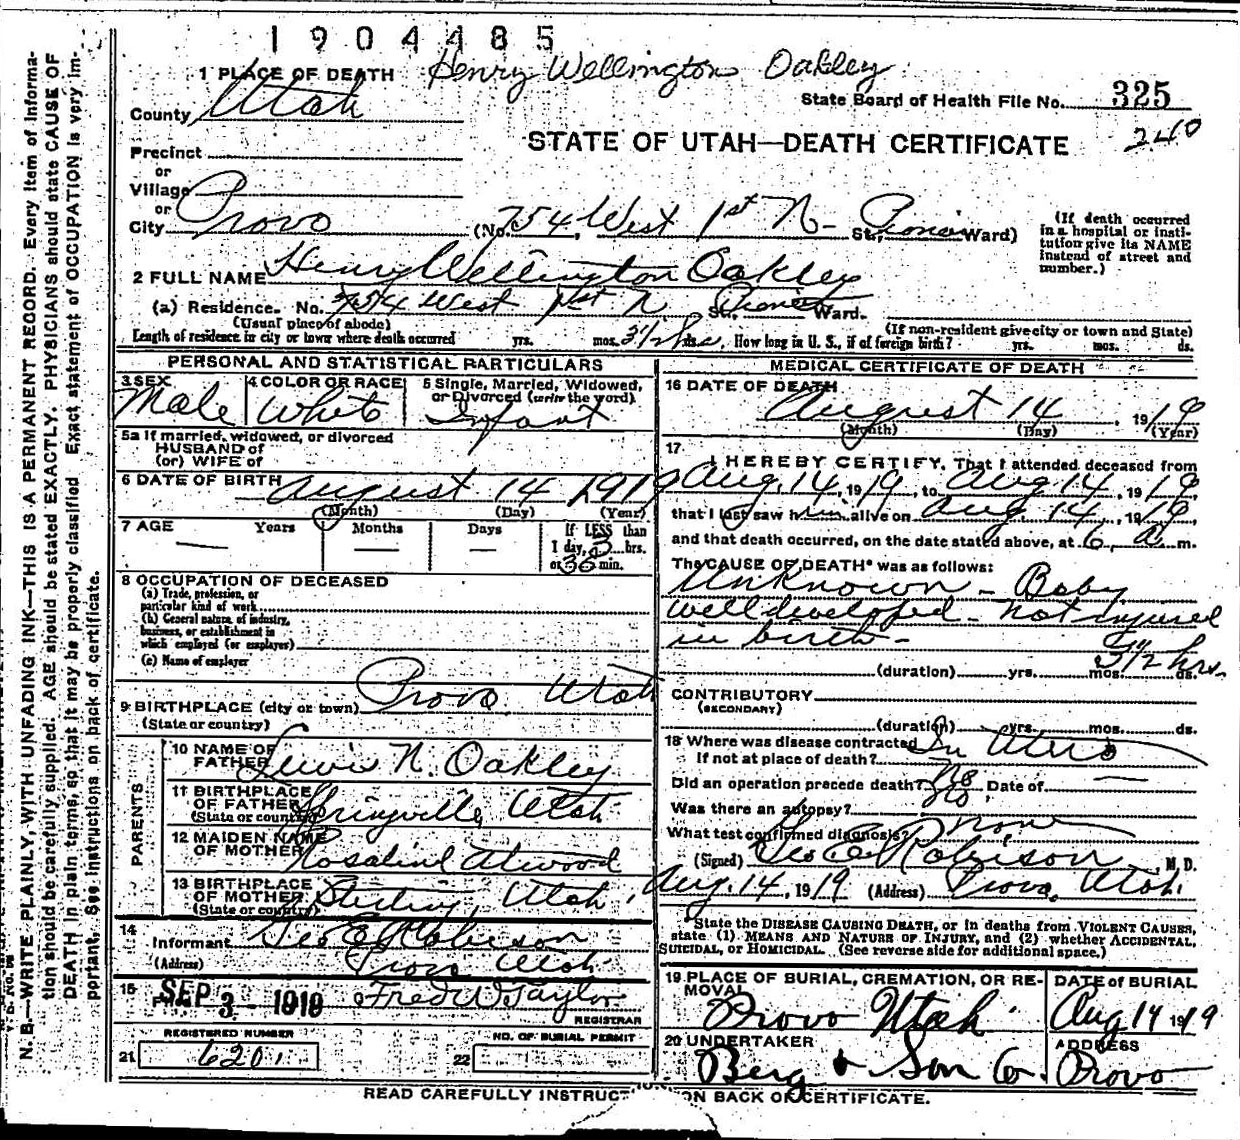 1904485
1 PLACE OF DEATH Henry Wellington Oakley
County Utah
State Board of Health File No. 325
240
STATE OF UTAH—DEATH CERTIFICATE
Precinct
or
Village
or
City Provo (No. 754, West 1st N- St., Pioneer Ward)
(If death occurred in a hospital or institution give its NAME instead of street and number.)
2 FULL NAME Henry Wellington Oakley
(a) Residence. No. 754 West 1st N. St., Pioneer Ward.
(Usual place of abode) (If non-resident give city or town and State)
Length of residence in city or town where death occurred yrs. mos. 3 1/2 hrs ds. How long in U. S., if of foreign birth? yrs. mos. ds.
PERSONAL AND STATISTICAL PARTICULARS
3 SEX Male
4 COLOR OR RACE White
5 Single, Married, Widowed, or Divorced (write the word) Infant
5a If married, widowed, or divorced
HUSBAND of
(or) WIFE of
6 DATE OF BIRTH August 14 1919
(Month) (Day) (Year)
7 AGE Years Months Days If LESS than
— — — 1 day, 3 hrs.
or 30 min.
8 OCCUPATION OF DECEASED
(a) Trade, profession, or
particular kind of work
(b) General nature of industry,
business, or establishment in
which employed (or employer)
(c) Name of employer
9 BIRTHPLACE (city or town) Provo Utah
(State or country)
PARENTS
10 NAME OF
FATHER Lewis N. Oakley
11 BIRTHPLACE
OF FATHER Springville, Utah
(State or country)
12 MAIDEN NAME
OF MOTHER Rosalind Atwood
13 BIRTHPLACE
OF MOTHER Sterling, Utah
(State or country)
14
Informant Geo E Robison
(Address) Provo Utah
15 SEP 3 - 1919 Fred W Taylor
REGISTRAR
REGISTERED NUMBER
21 620
NO. OF BURIAL PERMIT
22
MEDICAL CERTIFICATE OF DEATH
16 DATE OF DEATH
August 14, 1919
(Month) (Day) (Year)
17
I HEREBY CERTIFY, That I attended deceased from
Aug. 14, 1919, to Aug 14, 1919,
that I last saw him alive on Aug 14, 1919,
and that death occurred, on the date stated above, at 6 a. m.
The CAUSE OF DEATH* was as follows:
Unknown - Baby
well developed - not injured
in birth -
(duration) yrs. mos. ds. 3 1/2 hrs.
CONTRIBUTORY
(SECONDARY)
(duration) yrs. mos. ds.
18 Where was disease contracted In Utero
If not at place of death?
Did an operation precede death? No Date of —
Was there an autopsy? no
What test confirmed diagnosis? none
(Signed) Geo E Robison, M. D.
Aug. 14, 1919 (Address) Provo, Utah.
*State the DISEASE CAUSING DEATH, or in deaths from VIOLENT CAUSES,
state (1) MEANS AND NATURE OF INJURY, and (2) whether ACCIDENTAL,
SUICIDAL, or HOMICIDAL. (See reverse side for additional space.)
19 PLACE OF BURIAL, CREMATION, OR RE-
MOVAL
Provo Utah
DATE of BURIAL
Aug 14 1919
20 UNDERTAKER
Berg & Son Co.
ADDRESS
Provo
READ CAREFULLY INSTRUCT ON BACK OF CERTIFICATE.
N. B.—WRITE PLAINLY, WITH UNFADING INK—THIS IS A PERMANENT RECORD. Every item of informa-
tion should be carefully supplied. AGE should be stated EXACTLY. PHYSICIANS should state CAUSE OF
DEATH in plain terms, so that it may be properly classified. Exact statement of OCCUPATION is very im-
portant. See instructions on back of certificate.